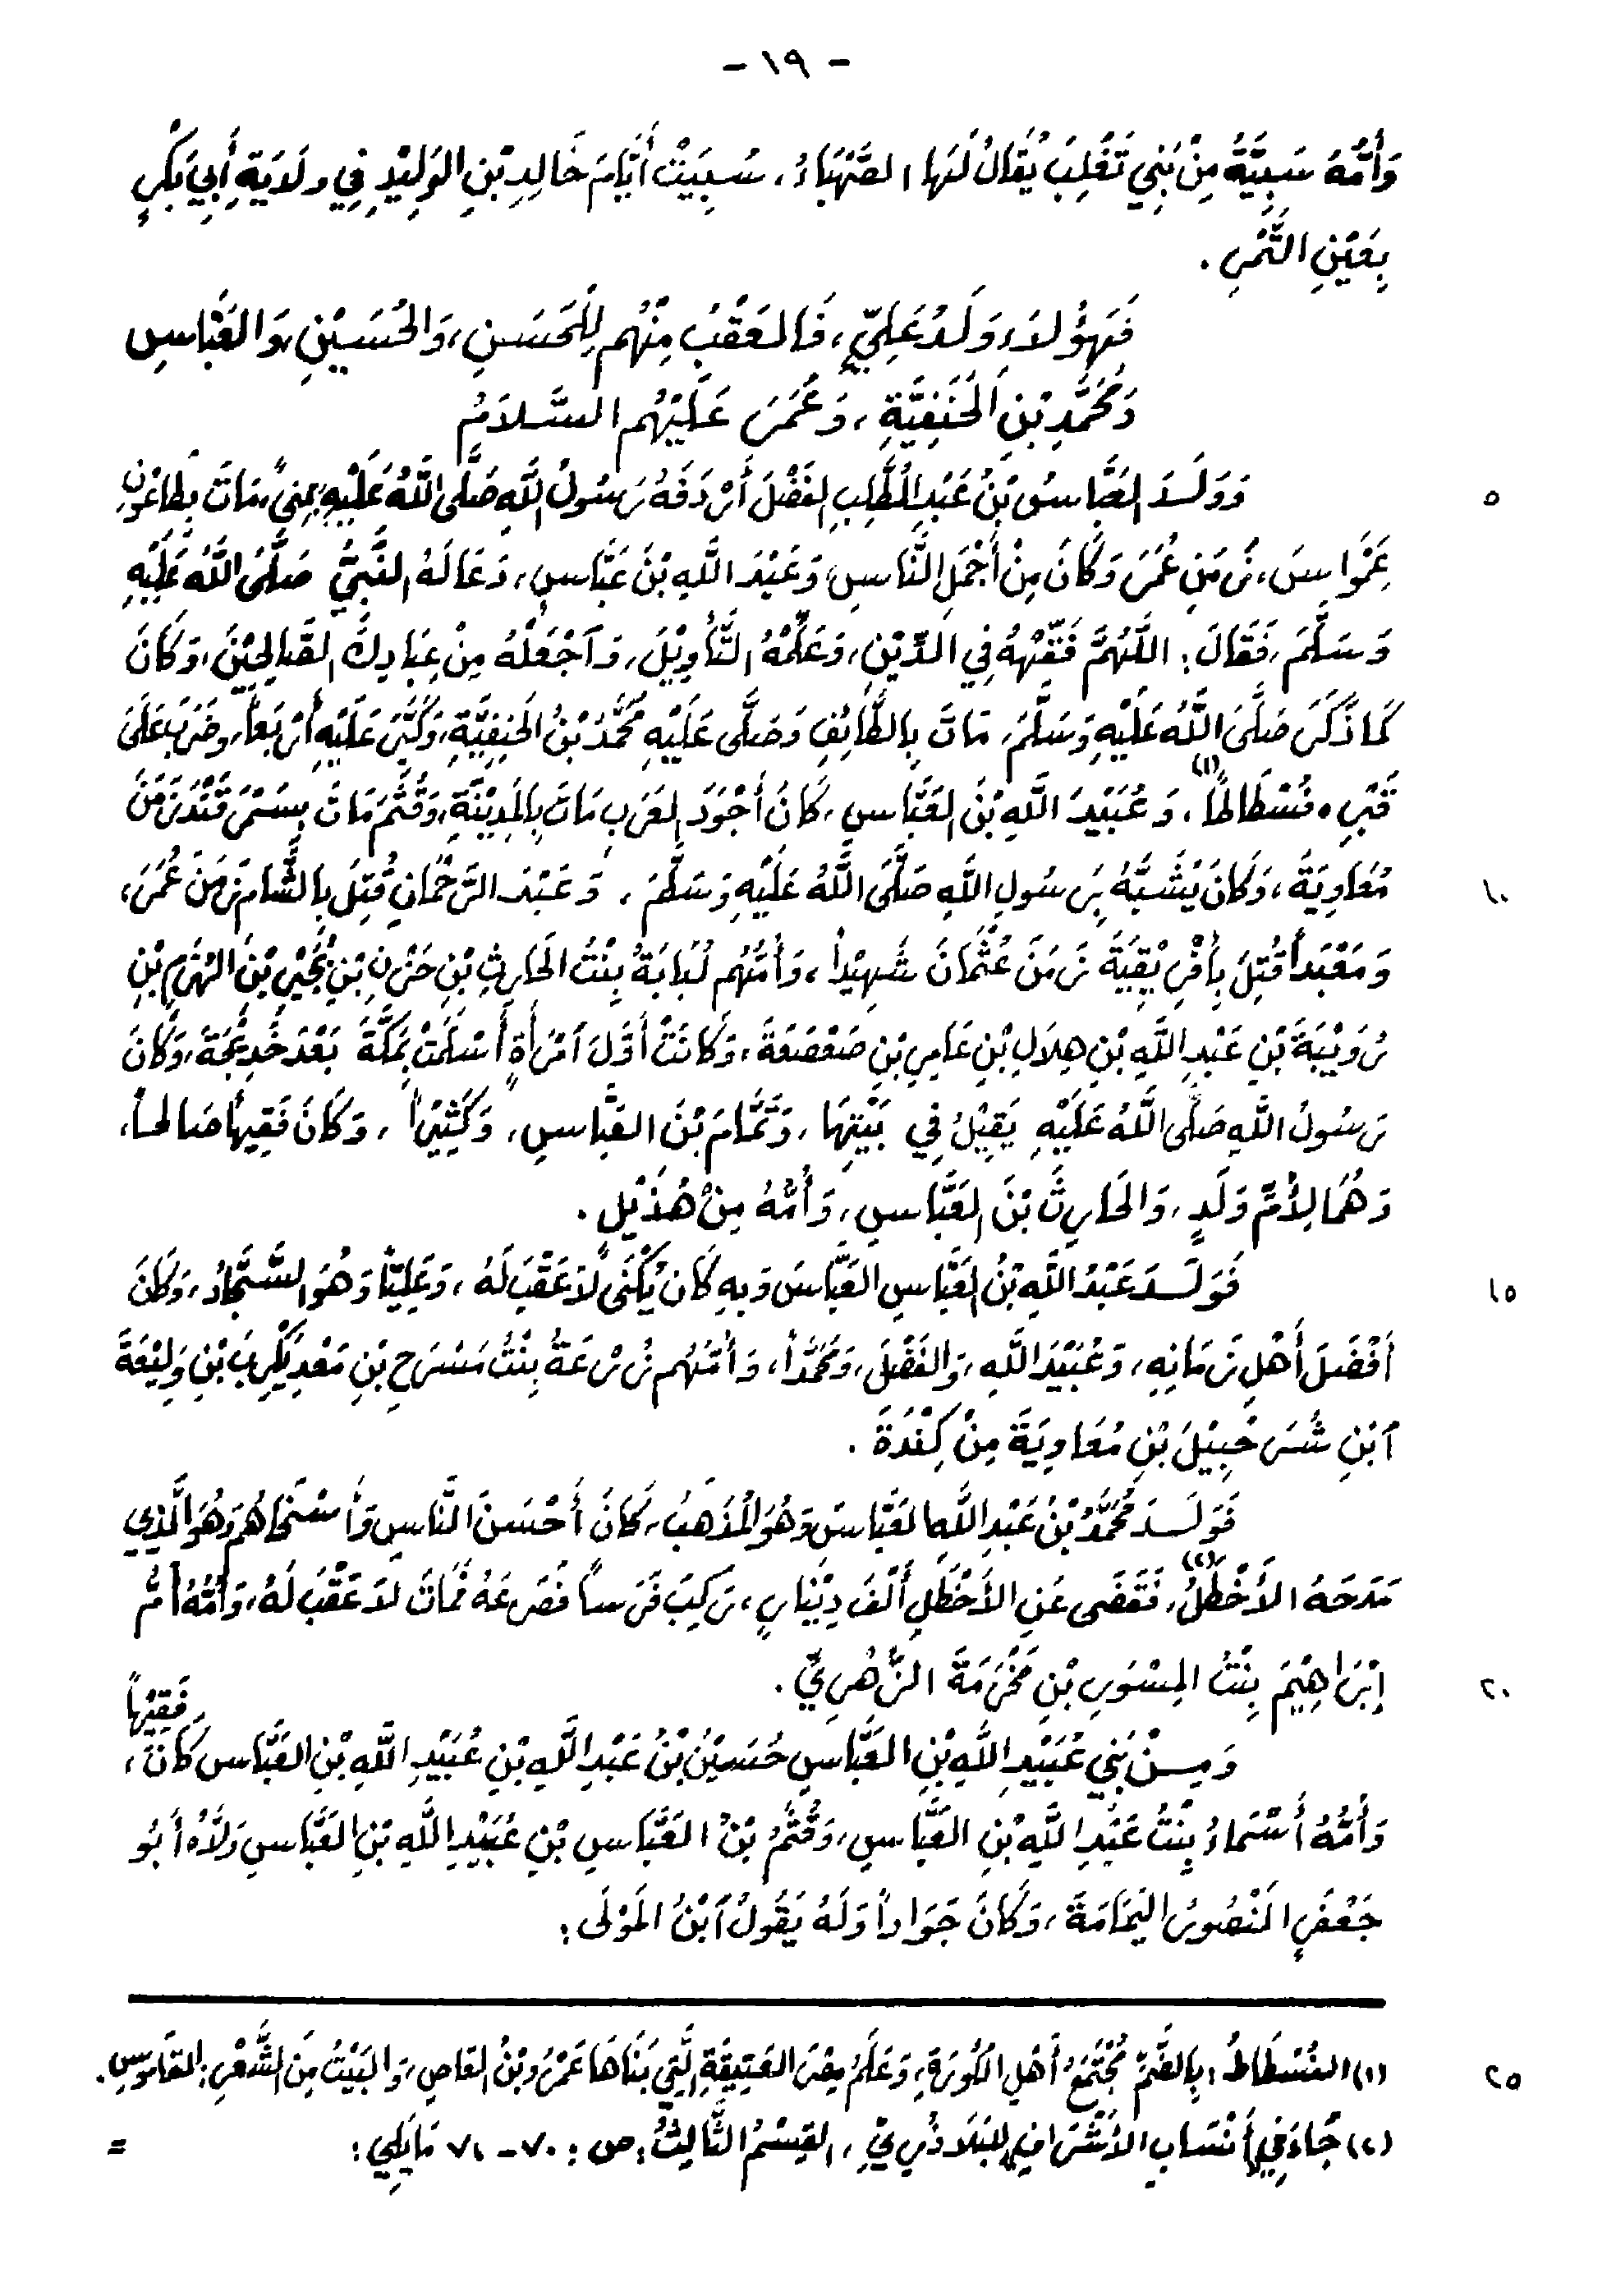 - ١٩ -
وَأُمُّهُ سَبِيَّةٌ مِنْ بَنِي تَغْلِبَ يُقَالُ لَهَا الصَّهْبَاءُ، سُبِيَتْ أَيَّامَ خَالِدِ بْنِ الوَلِيْدِ فِي وِلَايَةِ أَبِي بَكْرٍ
بِعَيْنِ التَّمْرِ .
فَهَؤُلاَءِ وَلَدُ عَلِيٍّ، فَالعَقْبُ مِنْهُم لِلْحَسَنِ، وَالحُسَيْنِ، وَالعَبَّاسِ
وَمُحَمَّدِ بْنِ الحَنَفِيَّةِ، وَعُمَرَ عَلَيْهُم السَّلاَمُ
٥ وَوَلَدَ العَبَّاسُ بْنُ عَبْدِ المُطَّلِبِ الفَضْلَ أَرْدَفَهُ رَسُولُ اللَّهِ صَلَّى اللَّهُ عَلَيْهِ بِمِنىً، مَاتَ بِطَاعُونِ
عَمْوَاسَ، زَمَنِ عُمَرَ وَكَانَ مِنْ أَجْمَلِ النَّاسِ، وَعَبْدَ اللَّهِ بْنَ عَبَّاسٍ، دَعَا لَهُ النَّبِيُّ صَلَّى اللَّهُ عَلَيْهِ
وَسَلَّمَ، فَقَالَ: اللَّهُمَّ فَقِّهْهُ فِي الدِّيْنِ، وَعَلِّمْهُ التَّأْوِيْلَ، وَٱجْعَلْهُ مِنْ عِبَادِكَ الصَّالِحِيْنَ، وَكَانَ
كَمَا ذَكَرَ صَلَّى اللَّهُ عَلَيْهِ وَسَلَّمَ، مَاتَ بِالطَّائِفِ وَصَلَّى عَلَيْهِ مُحَمَّدُ بْنُ الحَنَفِيَّةِ، وَكَبَّرَ عَلَيْهِ أَرْبَعاً، وضَرَبَ عَلَى
قَبْرِهِ فُسْطَاطاً(١)، وَعُبَيْدَ اللَّهِ بْنَ العَبَّاسِ، كَانَ أَجْوَدَ العَرَبِ مَاتَ بِالمَدِيْنَةِ، وَقُثَمَ مَاتَ بِسَمْرَقَنْدَ زَمَنَ
١٠ مُعَاوِيَةَ، وَكَانَ يُشَبَّهُ بِرَسُولِ اللَّهِ صَلَّى اللَّهُ عَلَيْهِ وَسَلَّمَ، وَعَبْدَ الرَّحْمَانِ قُتِلَ بِالشَّامِ زَمَنَ عُمَرَ،
وَمَعْبَداً قُتِلَ بِأَفْرِيْقِيَةَ زَمَنَ عُثْمَانَ شَهِيْداً، وَأُمُّهُم لُبَابَةُ بِنْتُ الحَارِثِ بْنِ حَزْنِ بْنِ بُجَيْرِ بْنِ الهُزَمِ بْنِ
رُوَيْبَةَ بْنِ عَبْدِ اللَّهِ بْنِ هِلاَلِ بْنِ عَامِرِ بْنِ صَعْصَعَةَ، وَكَانَتْ أَوَّلَ ٱمْرَأَةٍ أَسْلَمَتْ بِمَكَّةَ بَعْدَ خَدِيْجَةَ، وَكَانَ
رَسُولُ اللَّهِ صَلَّى اللَّهُ عَلَيْهِ يَقِيْلُ فِي بَيْتِهَا، وَتَمَّامَ بْنَ العَبَّاسِ، وَكَثِيْراً، وَكَانَ فَقِيهاً صَالحاً،
وَهُمَا لِأُمِّ وَلَدٍ، وَالحَارِثَ بْنَ العَبَّاسِ، وَأُمُّهُ مِنْ هُذَيْلٍ .
١٥ فَوَلَدَ عَبْدُ اللَّهِ بْنُ العَبَّاسِ العَبَّاسَ وَبِهِ كَانَ يُكْنَى لاَ عَقْبَ لَهُ، وَعَلِيّاً وَهُوَ السَّجَّادُ، وَكَانَ
أَفْضَلَ أَهْلِ زَمَانِهِ، وَعُبَيْدَ اللَّهِ، وَالفَضْلَ، وَمُحَمَّداً، وَأُمُّهُم زُرْعَةُ بِنْتُ مَسْرَحِ بْنِ مَعْدِيْكَرِبَ بْنِ وَلِيْعَةَ
ٱبْنِ شُرَحْبِيْلَ بْنِ مُعَاوِيَةَ مِنْ كِنْدَةَ .
فَوَلَدَ مُحَمَّدُ بْنُ عَبْدِ اللَّهِ العَبَّاسَ وَهُوَ المُذَهَبُ، كَانَ أَحْسَنَ النَّاسِ وَأَسْخَاهُم وَهُوَ الَّذِي
مَدَحَهُ الأَخْطَلُ(٢)، فَقَضَى عَنِ الأَخْطَلِ أَلْفَ دِيْنَارٍ، رَكِبَ فَرَساً فَصَرَعَهُ فَمَاتَ لاَ عَقْبَ لَهُ، وَأُمُّهُ أُمُّ
٢٠ إبْرَاهِيْمَ بِنْتُ المِسْوَرِ بْنِ مَخْرَمَةَ الزُّهْرِيِّ .
وَمِنْ بَنِي عُبَيْدِ اللَّهِ بْنِ العَبَّاسِ حُسَيْنُ بْنُ عَبْدِ اللَّهِ بْنِ عُبَيْدِ اللَّهِ بْنِ العَبَّاسِ كَانَ فَقِيْهاً،
وَأُمُّهُ أَسْمَاءُ بِنْتُ عَبْدِ اللَّهِ بْنِ العَبَّاسِ، وَقُثَمُ بْنُ العَبَّاسِ بْنِ عُبَيْدِ اللَّهِ بْنِ العَبَّاسِ وَلاَّهُ أَبُو
جَعْفَرٍ المَنْصُورُ اليَمَامَةَ، وَكَانَ جَوَاداً وَلَهُ يَقُولُ ٱبْنُ المَوْلَى :
٢٥ (١) الفُسْطَاطُ : بِالضَّمِّ مُجْتَمَعُ أَهْلِ الكُورَةِ، وَعَلَمُ مِصْرَ العَتِيقَةِ الَّتِي بَنَاهَا عَمْرُو بْنُ العَاصِ، وَالبَيْتُ مِنَ الشَّعْرِ : القَامُوس.
(٢) جَاءَ فِي أَنْسَابِ الأَشْرَافِ لِلبَلاَذُرِيِّ، القِسْمُ الثَّالِثُ : ص : ٧٠ - ٧١ مَا يَلِي : =